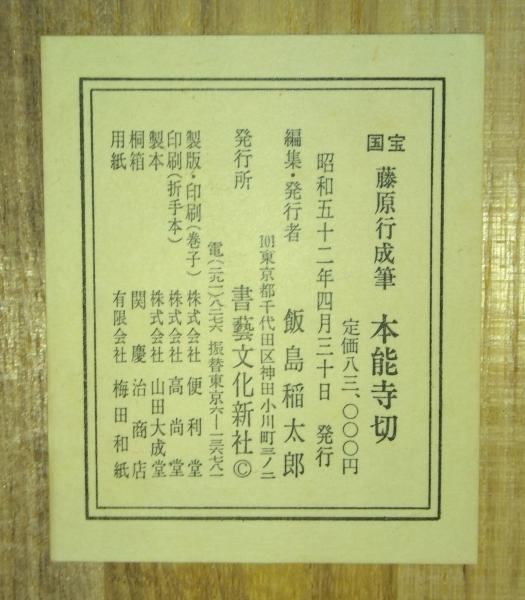 国宝 藤原行成筆 本能寺切
定価八三、〇〇〇円
昭和五十二年四月三十日 発行
編集・発行者 飯島稲太郎
101東京都千代田区神田小川町三ノ二
発行所 書藝文化新社©
電(二九一)八二七六 振替東京六―一三六七八一
製版・印刷(巻子) 株式会社 便利堂
印刷(折手本) 株式会社 高尚堂
製本 株式会社 山田大成堂
桐箱 関慶治商店
用紙 有限会社 梅田和紙